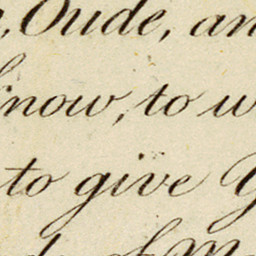 , Oude, an
now, to w
to give
of M